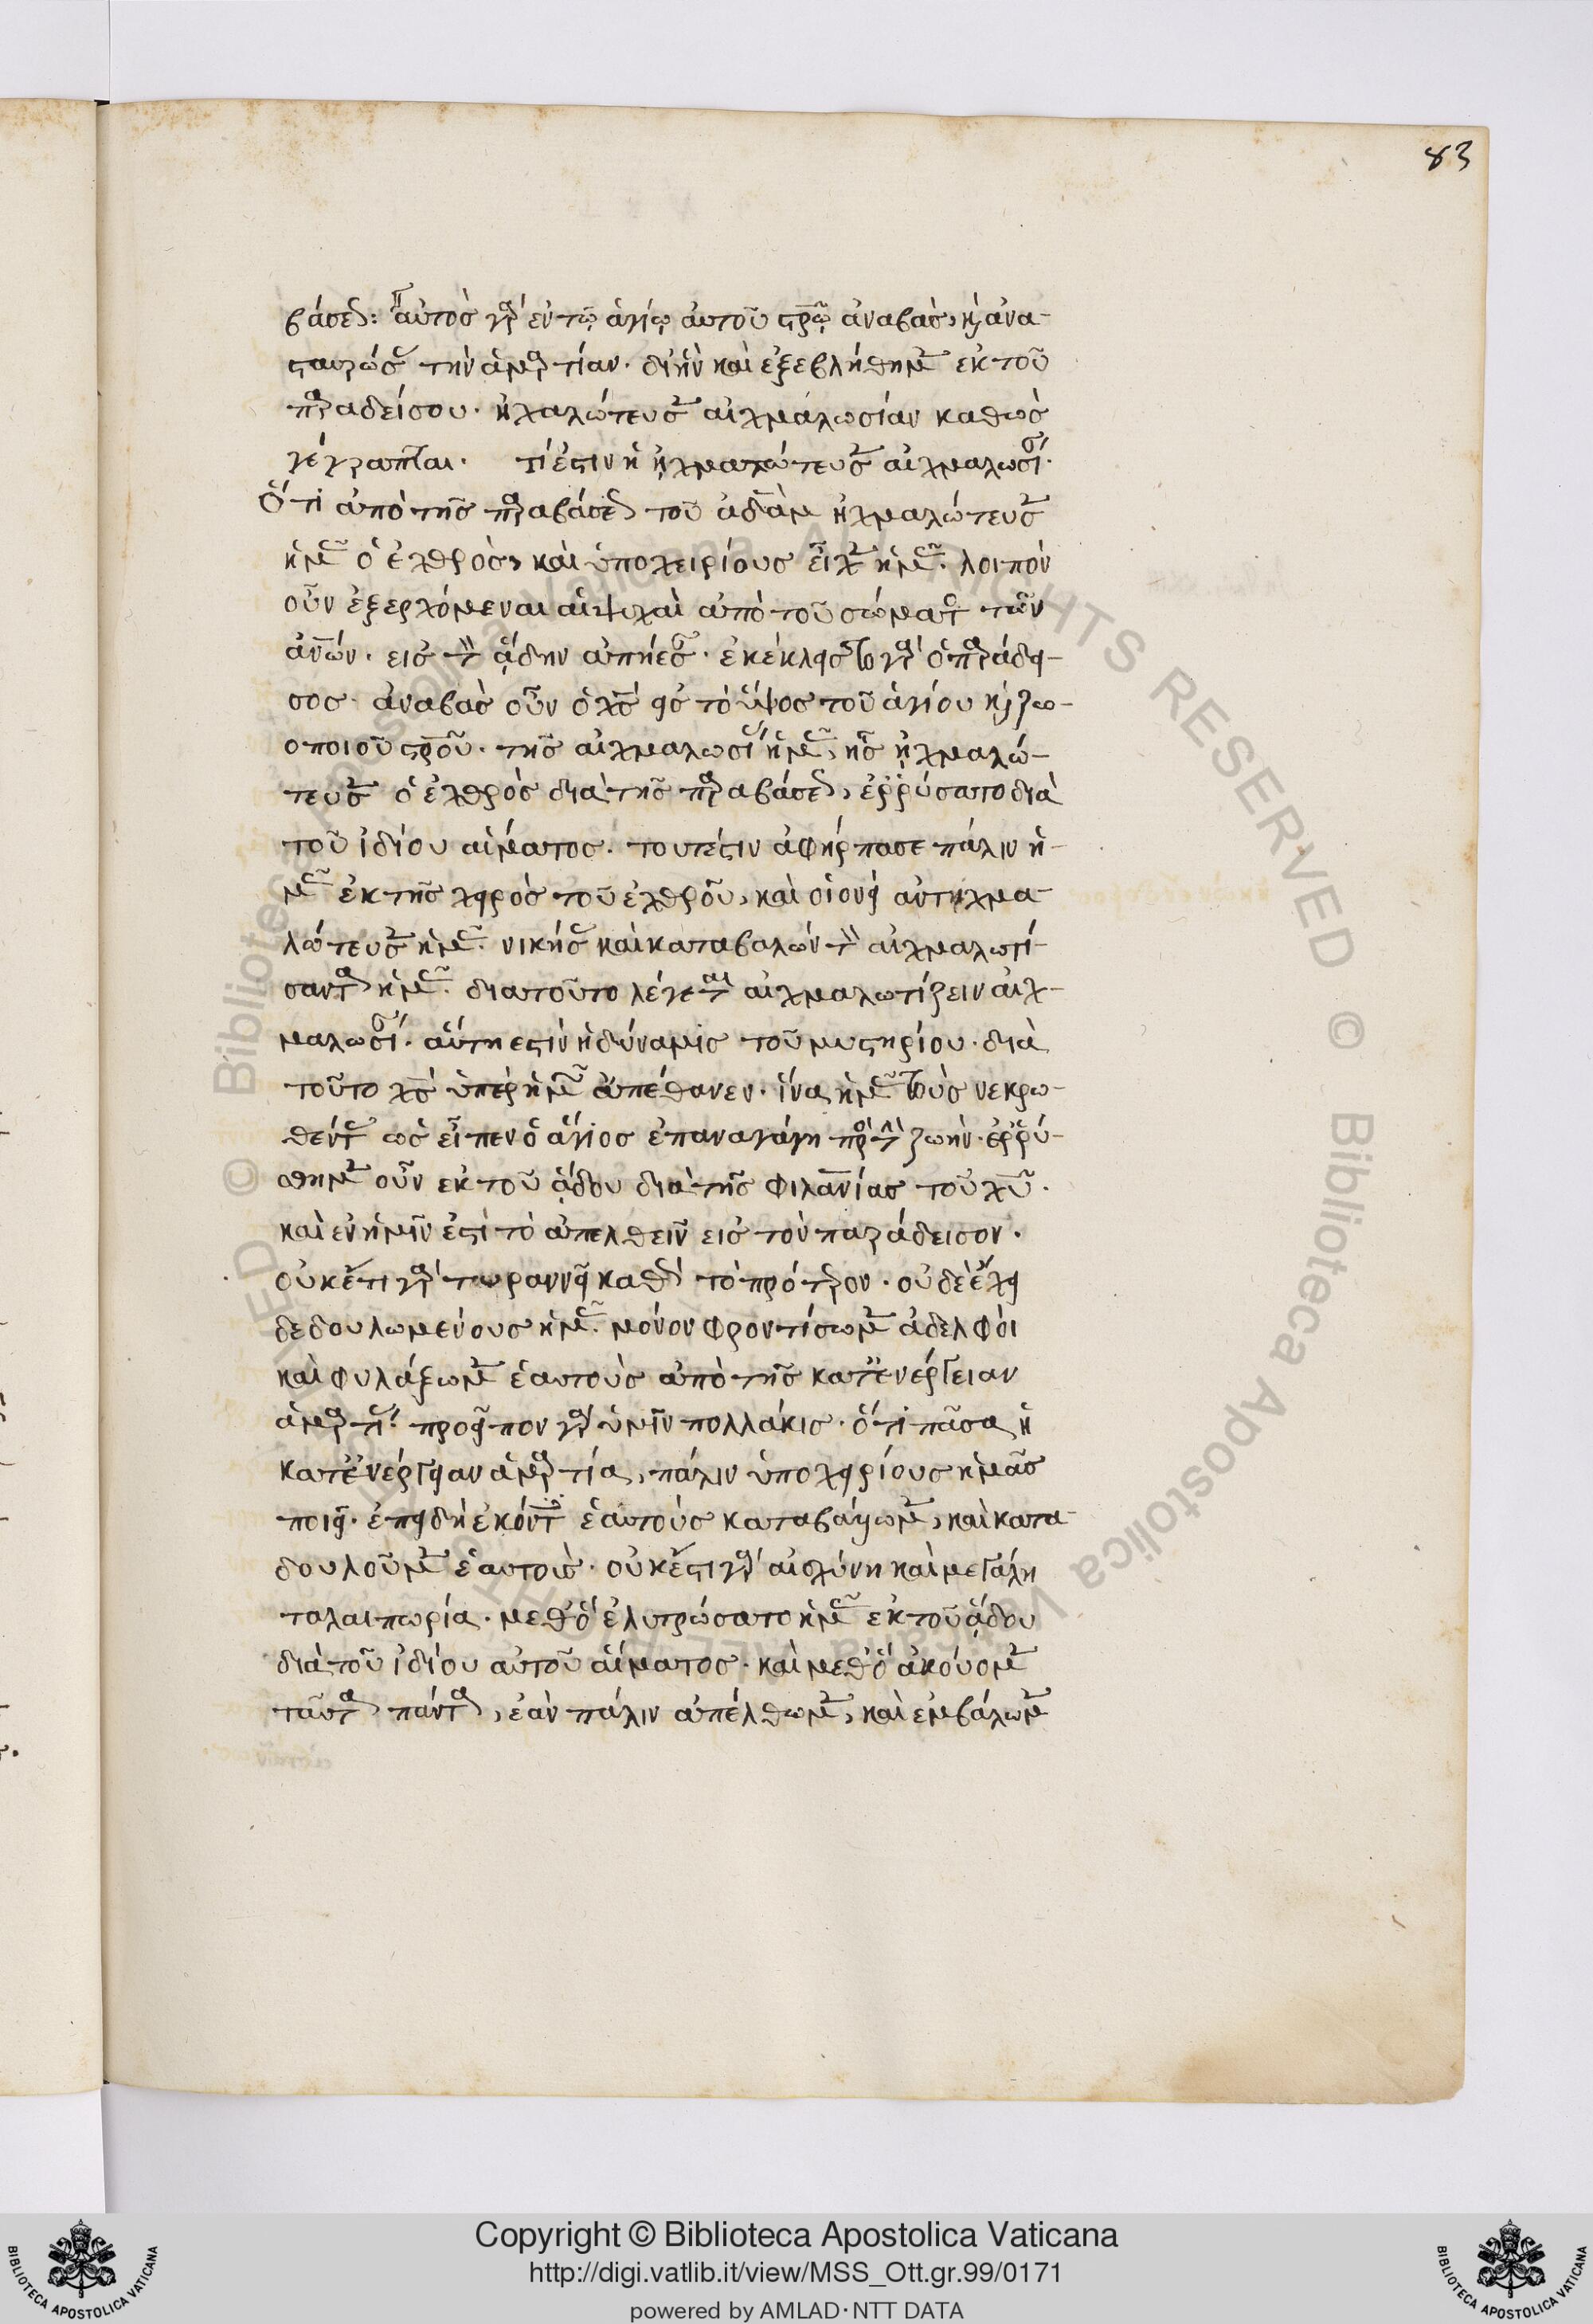 83
βάσεως: αὐτὸς γὰρ ἐν τῷ ἁγίῳ αὐτοῦ στρῷ ἀναβὰς, καὶ ἀνα-
σταυρώσας τὴν ἁμαρτίαν. δι' ἣν καὶ ἐξεβλήθημεν ἐκ τοῦ
παραδείσου. ἠχαλώτευσεν αἰχμαλωσίαν καθὼς
γέγραπται. τί ἐστιν ἡ ἠχμαλώτευσεν αἰχμαλωσίαν.
Ὅτι ἀπὸ τῆς παραβάσεως τοῦ ἀδὰμ ἠχμαλώτευσεν
ἡμᾶς ὁ ἐχθρὸς, καὶ ὑποχειρίους εἶχεν ἡμᾶς. λοιπὸν
οὖν ἐξερχόμεναι αἱ ψυχαὶ ἀπὸ τοῦ σώματος τῶν
ἀνων. εἰς τὸν ᾅδην ἀπήεσαν. ἐκέκλειστο γὰρ ὁ παράδει-
σος. ἀναβὰς οὖν ὁ χς εἰς τὸ ὕψος τοῦ ἁγίου καὶ ζω-
οποιοῦ στροῦ. τῆς αἰχμαλωσίας ἡμᾶς, ἧς ἠχμαλώ-
τευσεν ὁ ἐχθρὸς διὰ τῆς παραβάσεως, ἐρρύσατο διὰ
τοῦ ἰδίου αἵματος. τουτέστιν ἀφήρπασε πάλιν ἡ-
μᾶς ἐκ τῆς χειρὸς τοῦ ἐχθροῦ, καὶ οἱονεὶ αντηχμα-
λώτευσεν ἡμᾶς. νικήσας καὶ καταβαλὼν τὸν αἰχμαλωτί-
σαντα ἡμᾶς. διατοῦτο λέγεται αἰχμαλωτίζειν αἰχ-
μαλωσίαν. αὕτη ἐστὶν ἡ δύναμις τοῦ μυστηρίου. διὰ
τοῦτο χς ὑπὲρ ἡμῶν ἀπέθανεν. ἵνα ἡμᾶς τοὺς νεκρω-
θέντας ὡς εἶπεν ὁ ἅγιος ἐπαναγάγη πρὸς τὴν ζωὴν. ἐρρύ-
σθημεν οὖν ἐκ τοῦ ᾅδου διὰ τῆς φιλανίας τοῦ χυ.
καὶ ἐν ἡμῖν ἐστὶ τὸ ἀπελθεῖν εἰς τὸν παράδεισον.
οὐκέτι γὰρ τυραννεῖ καθὼς τὸ πρότερον. οὐδὲ ἔχει
δεδουλωμένους ἡμᾶς. μόνον φροντίσωμεν ἀδελφοὶ
καὶ φυλάξωμεν ἑαυτοὺς ἀπὸ τῆς κατ' ἐνέργειαν
ἁμαρτίας. προεῖπον γὰρ ὑμῖν πολλάκις. ὅτι πᾶσα ἡ
κατ' ἐνέργειαν ἁμαρτία, πάλιν ὑποχειρίους ἡμᾶς
ποιεῖ. ἐπειδὴ ἑκόντες ἑαυτοὺς καταβάλωμεν, καὶ κατα-
δουλοῦμεν ἑαυτοὺς. οὐκ ἔστι γὰρ αἰσχύνη καὶ μεγάλη
ταλαιπωρία. μεθ' ὃ ἐλυτρώσατο ἡμᾶς ἐκ τοῦ ᾅδου
διὰ τοῦ ἰδίου αὐτοῦ αἵματος. καὶ μεθ' ὃ ἀκούομεν
ταῦτα πάντα, ἐὰν πάλιν ἀπέλθωμεν, καὶ ἐμβάλωμεν
Copyright © Biblioteca Apostolica Vaticana
http://digi.vatlib.it/view/MSS_Ott.gr.99/0171
powered by AMLAD·NTT DATA